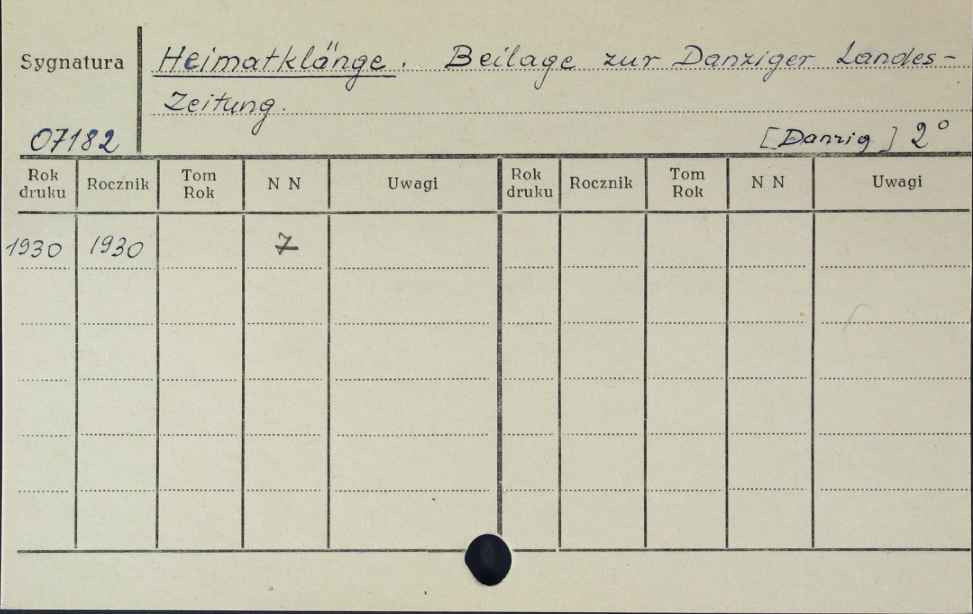 Sygnatura Heimatklänge. Beilage zur Danziger Landes-
Zeitung.
07182 [Danzig] 2°
Rok druku Rocznik Tom Rok N N Uwagi Rok druku Rocznik Tom Rok N N Uwagi
1930 1930 7